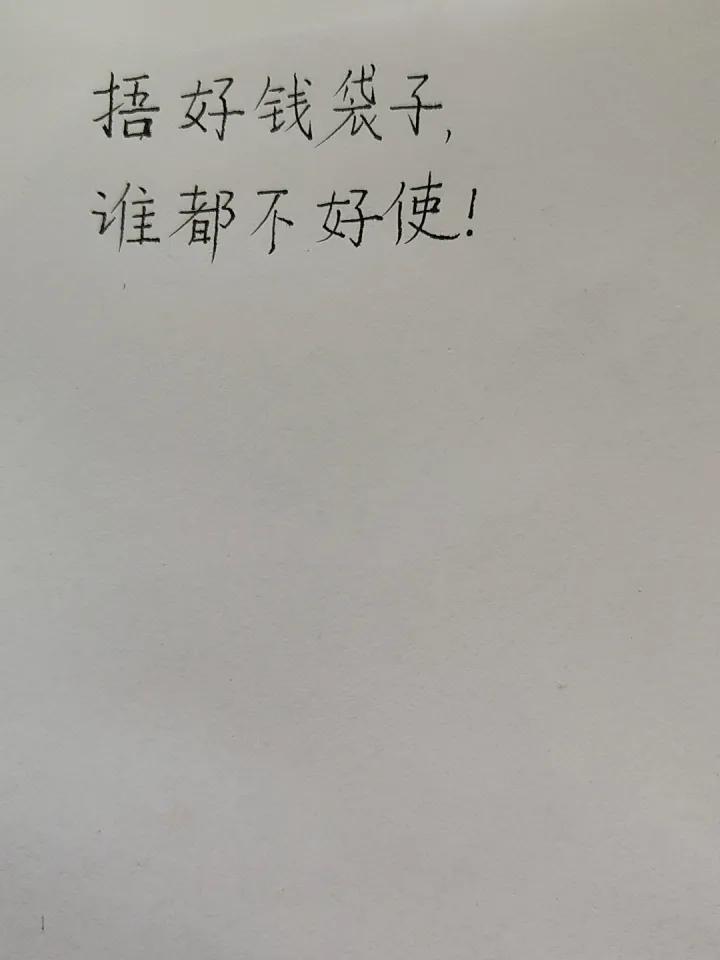 捂好钱袋子,
谁都不好使!